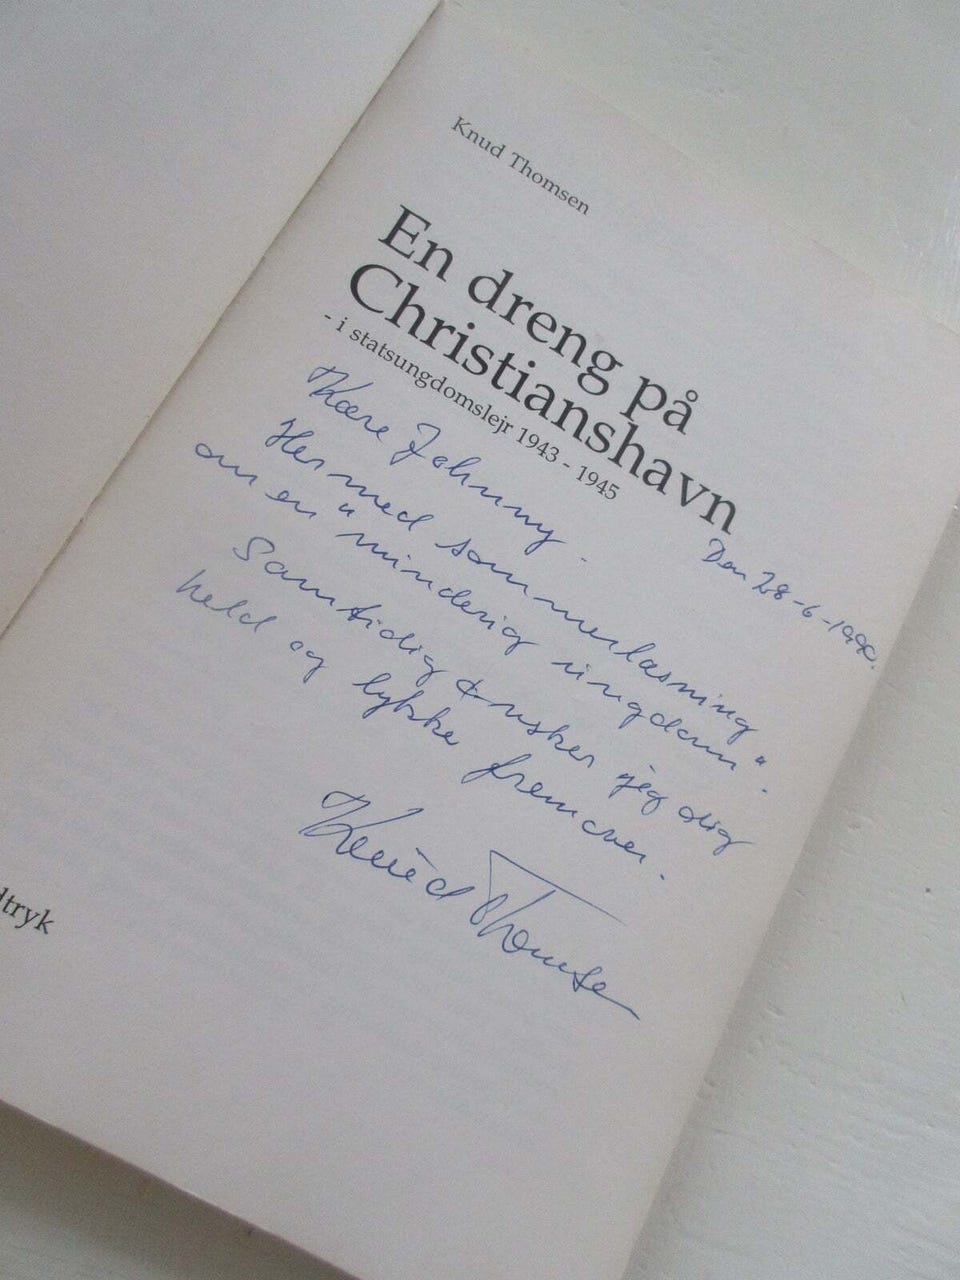 Knud Thomsen
En dreng på
Christianshavn
- i statsungdomslejr 1943 - 1945
Den 28-6-1990.
Kære Johnny -
Hermed sommerlæsning
om en "minderig ungdom".
Samtidig ønsker jeg dig
held og lykke fremover.
Knud Thomsen
dtryk